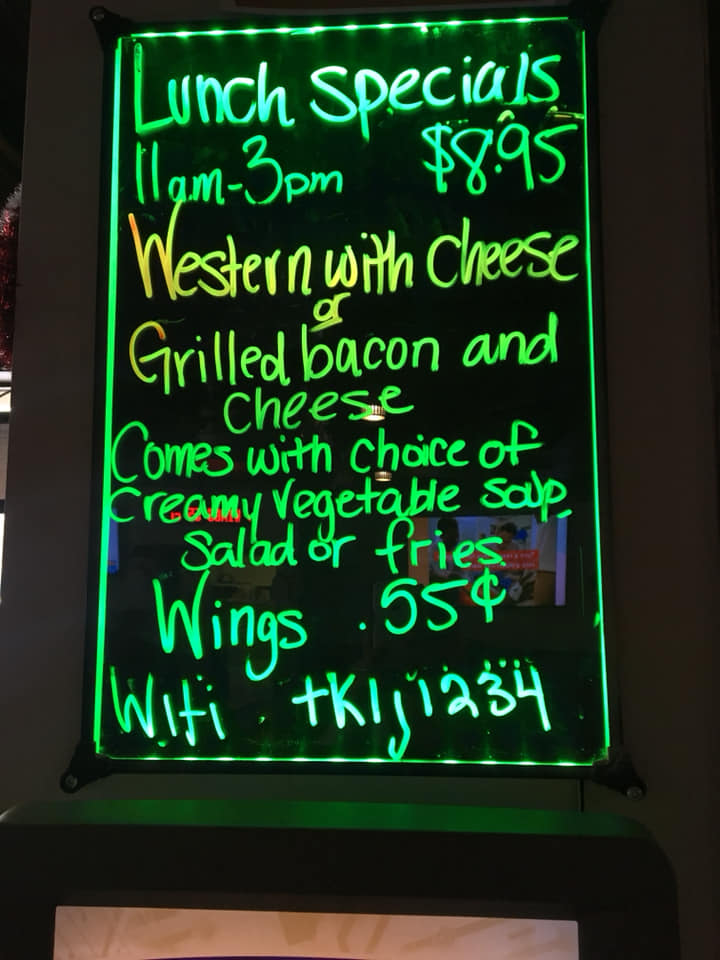 Lunch specials
11am-3pm $8.95
Western with cheese
or
Grilled bacon and
cheese
Comes with choice of
creamy vegetable soup,
salad or fries
Wings .55¢
Wifi